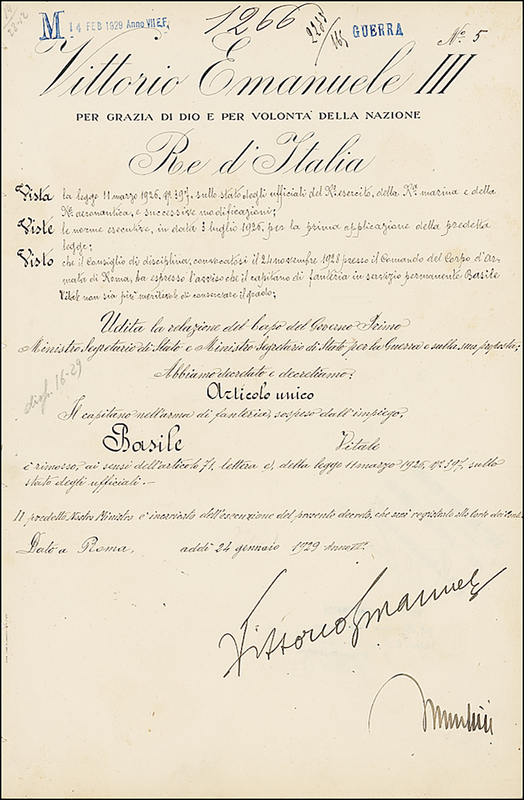 M 14 FEB 1929 Anno VII E.F. 1266 GUERRA N° 5
Vittorio Emanuele III
PER GRAZIA DI DIO E PER VOLONTA' DELLA NAZIONE
Re d'Italia
Vista la legge 11 marzo 1926, n° 397, sullo stato degli ufficiali del R° esercito, della R.a marina e della
R.a aeronautica, e successive modificazioni;
Viste le norme esecutive, in data 3 luglio 1926, per la prima applicazione della predetta
legge;
Visto che il Consiglio di disciplina, convocatosi il 24 novembre 1928 presso il Comando del Corpo d'Ar-
mata di Roma, ha espresso l'avviso che il capitano di fanteria in servizio permanente Basile
Vitale non sia più meritevole di conservare il grado;
Udita la relazione del Capo del Governo Primo
Ministro Segretario di Stato e Ministro Segretario di Stato per la Guerra e sulla sua proposta;
Abbiamo decretato e decretiamo:
disp. 16-29
Articolo unico
Il capitano nell'arma di fanteria, sospeso dall'impiego,
Basile Vitale
è rimosso, ai sensi dell'articolo 71, lettera e), della legge 11 marzo 1926, n° 397, sullo
stato degli ufficiali.-
Il predetto Nostro Ministro è incaricato dell'esecuzione del presente decreto, che sarà registrato alla Corte dei Conti.
Dato a Roma, addì 24 gennaio 1929 Anno VII.
Vittorio Emanuele
Mussolini